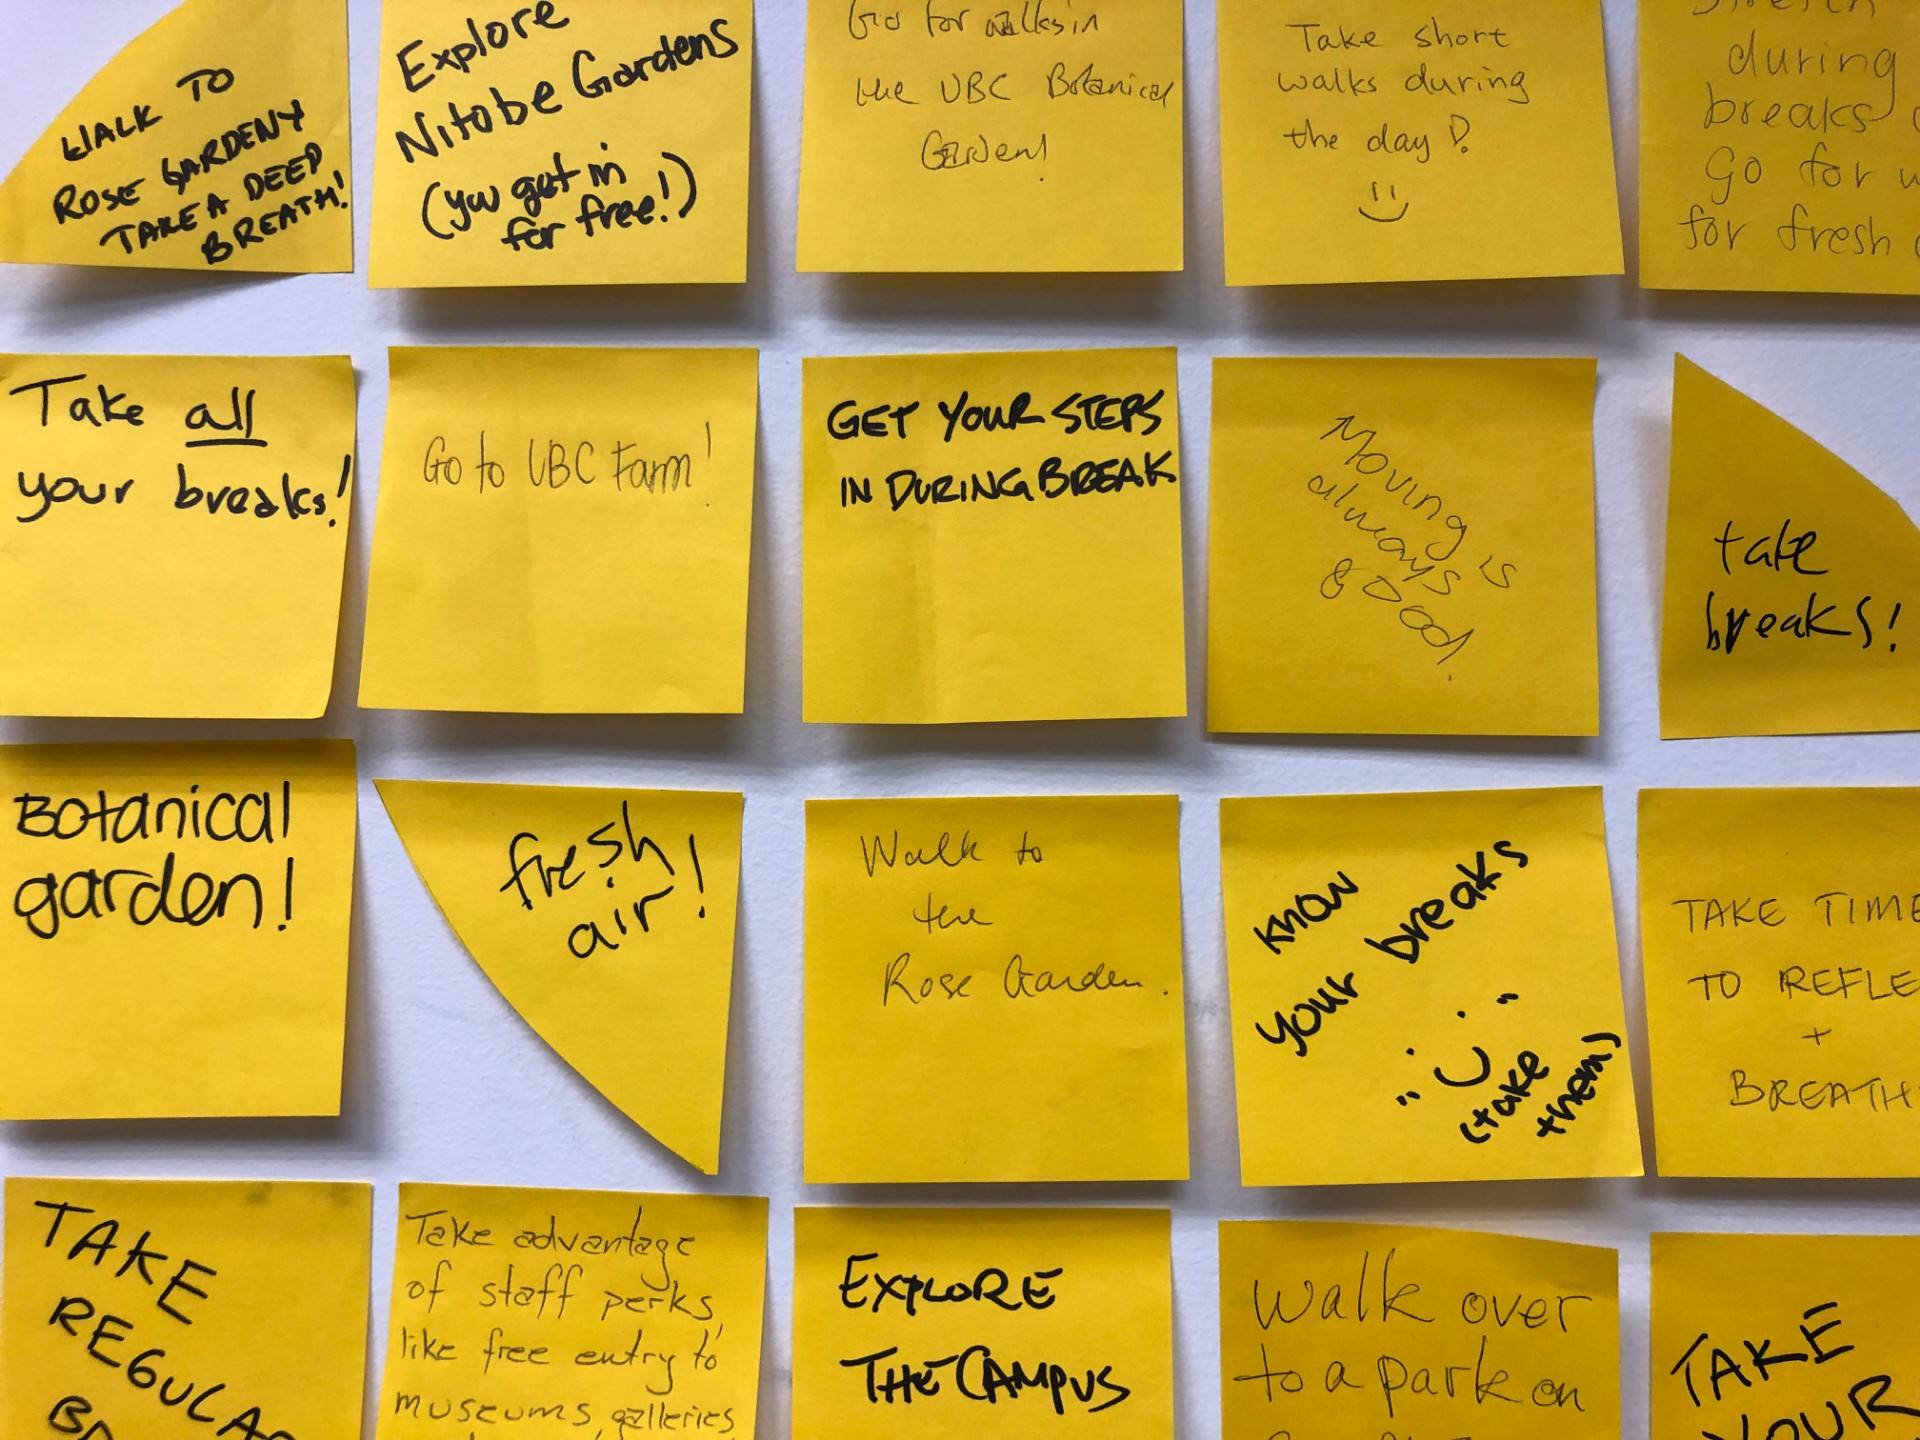 WALK TO
ROSE GARDEN Y
TAKE A DEEP
BREATH!
Explore
Nitobe Gardens
(you get in
for free!)
Go for walks in
the UBC Botanical
Garden!
Take short
walks during
the day!
during
breaks
Go for
for fresh
Take all
your breaks!
Go to UBC Farm!
GET YOUR STEPS
IN DURING BREAK
Moving is
always
good!
take
breaks!
Botanical
garden!
fresh
air!
Walk to
the
Rose Garden.
Know
your breaks
(take
them)
TAKE TIME
TO REFLE
+
BREATH
TAKE
REGULA
Take advantage
of staff perks,
like free entry to
museums, galleries,
EXPLORE
THE CAMPUS
Walk over
to a park on
TAKE
YOUR